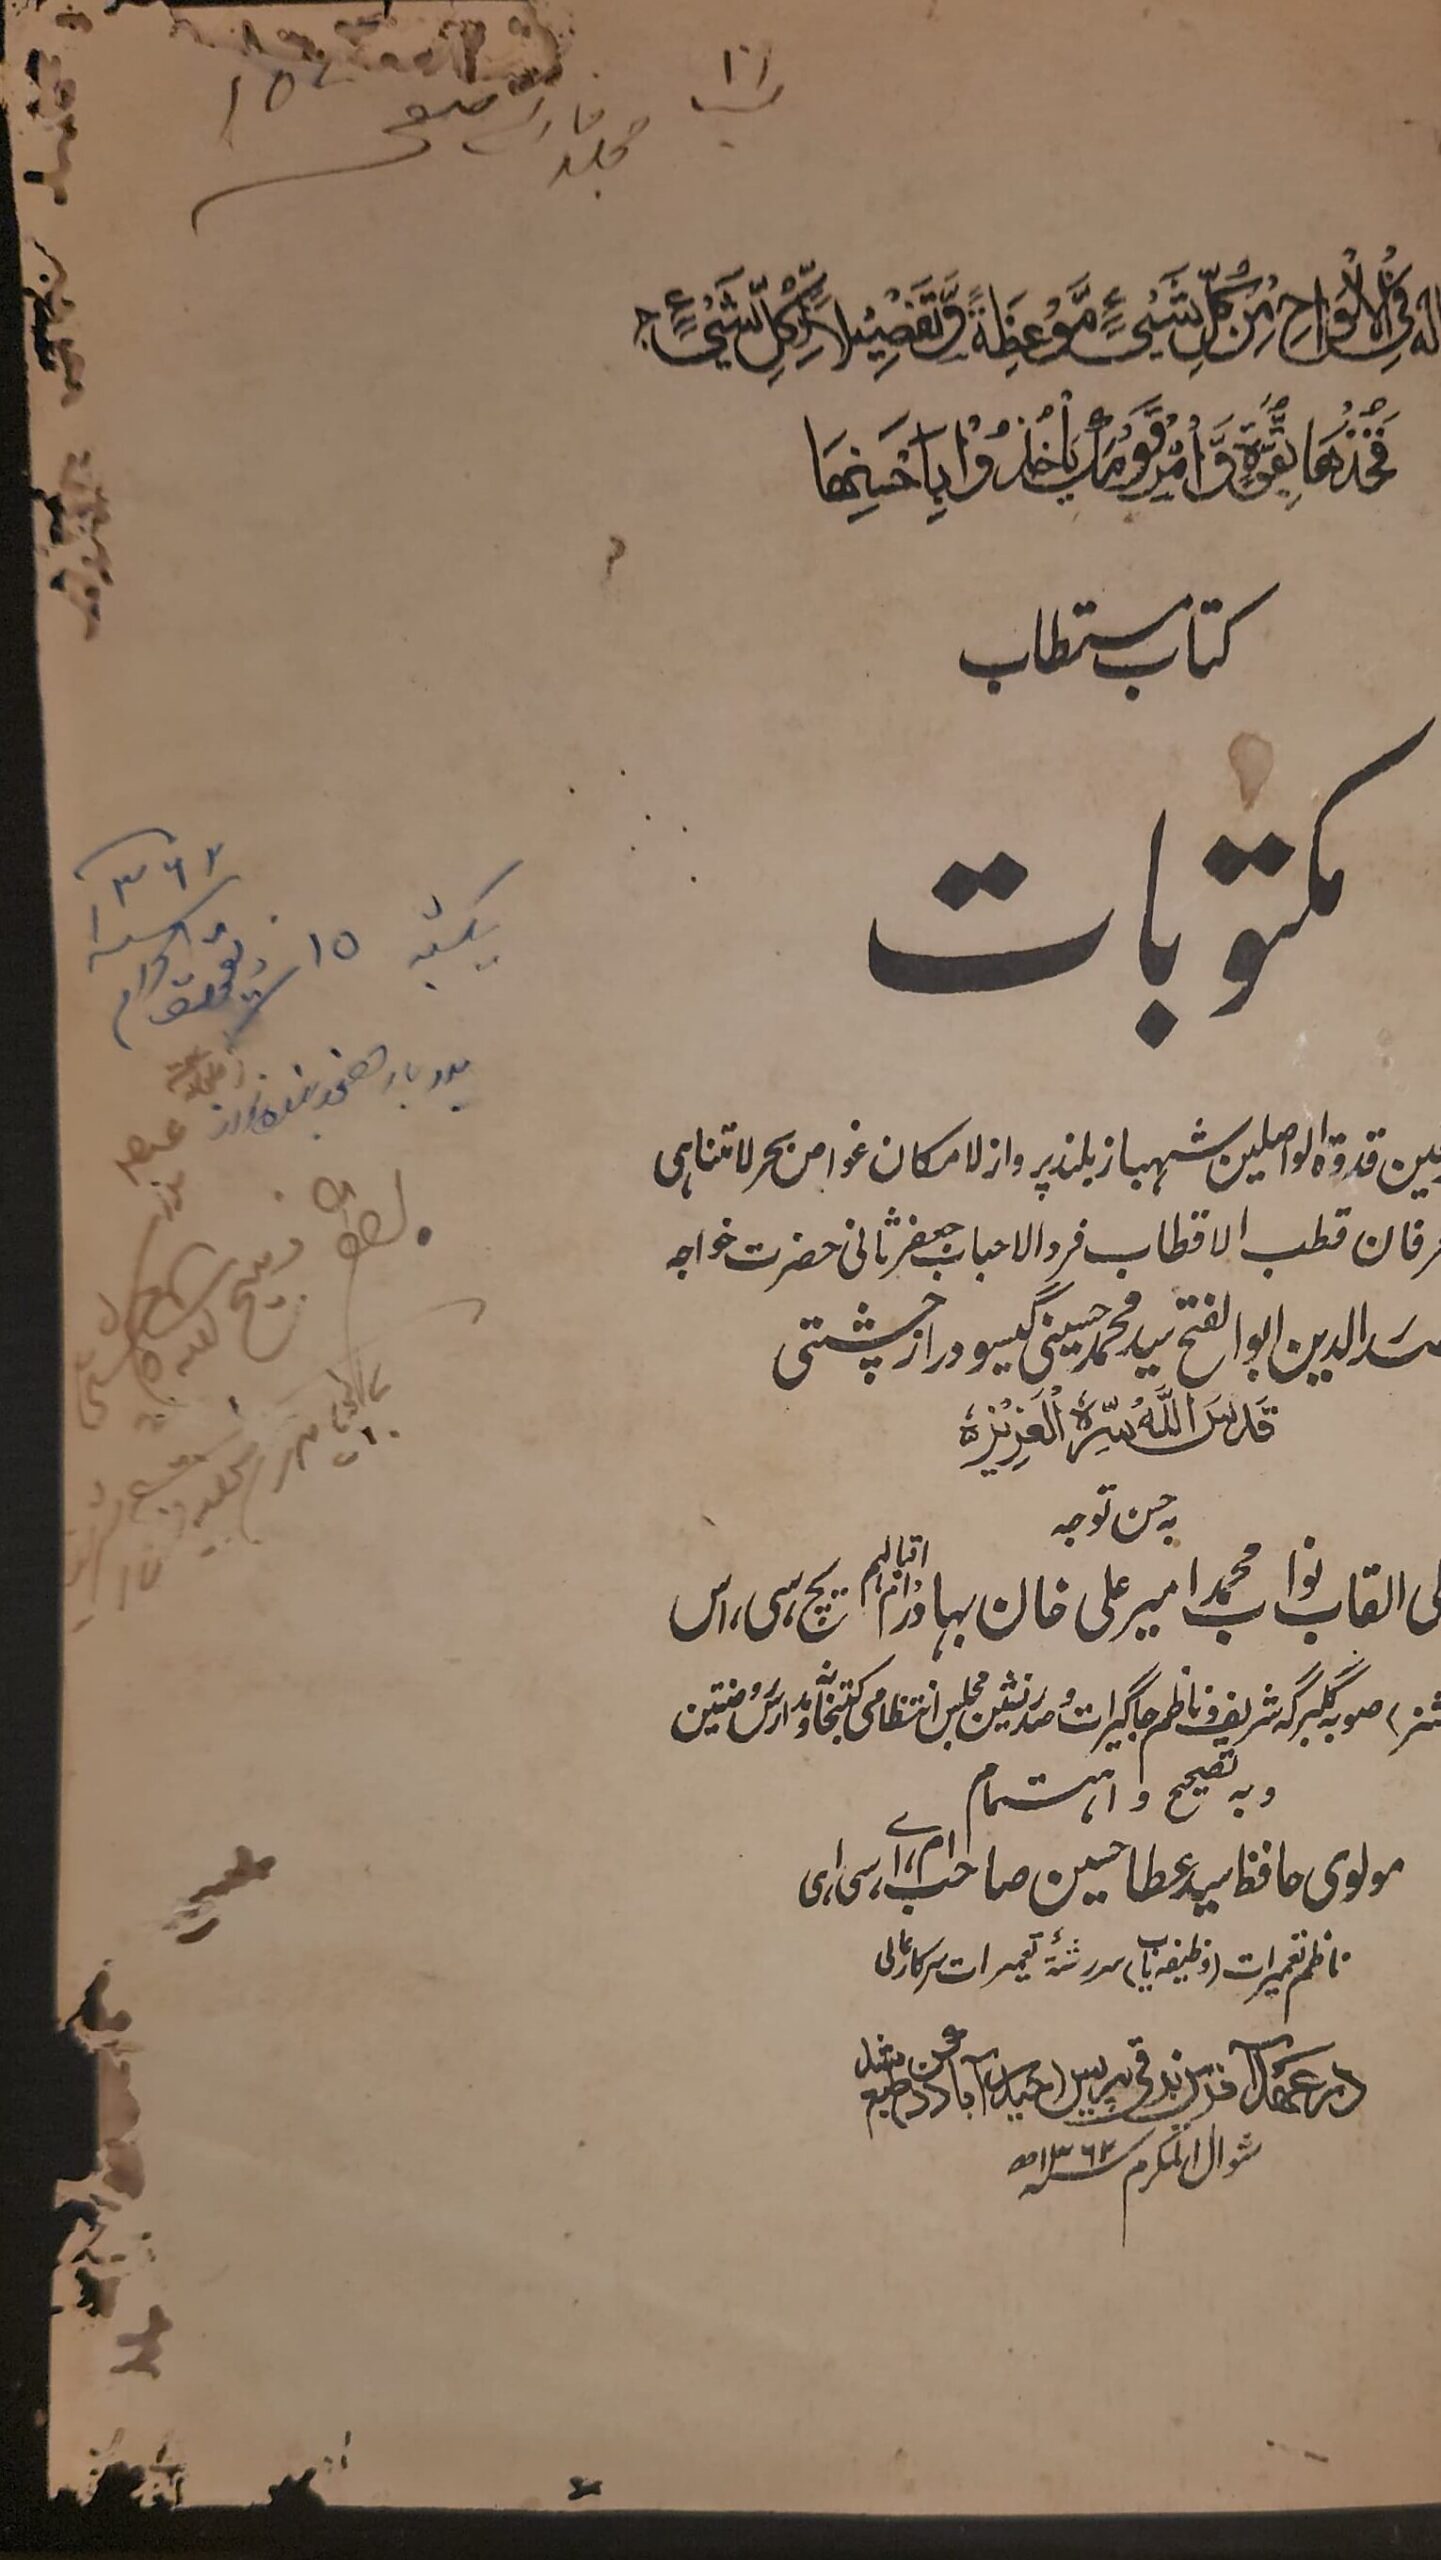 فِی الْاَلْوَاحِ مِنْ کُلِّ شَیْءٍ مَّوْعِظَةً وَّتَفْصِیْلًا لِّکُلِّ شَیْءٍ ج
فَخُذْهَا بِقُوَّةٍ وَّأْمُرْ قَوْمَكَ یَأْخُذُوْا بِاَحْسَنِهَا
کتاب مستطاب
مکتوبات
قدوة الواصلین شہباز بلند پرواز لامکان غواص بحر لا تناہی
قطب الاقطاب فرد الاحباب جعفر ثانی حضرت خواجہ
صدر الدین ابو الفتح سید محمد حسینی گیسو دراز چشتی
قَدَّسَ اللّٰهُ سِرَّهُ الْعَزِیْزَ
بہ حسن توجہ
القاب نواب محمد امیر علی خان بہادر دام اقبالہم ایچ، سی، اس
صوبہ گلبرگہ شریف و ناظم جاگیرات و صدر نشین مجلس انتظامی کتبخانہ و مدارس روضتین
و بہ تصحیح و اہتمام
مولوی حافظ سید عطا حسین صاحب ام، اے، سی، ای
ناظم تعمیرات (وظیفہ یاب) سررشتۂ تعمیرات سرکار عالی
در عہد آفریں برقی پریس (حیدرآباد دکن) طبع شد
شوال المکرم سنہ ۱۳۶۲ھ
یکشنبہ ۱۵ ذیقعدة الحرام سنہ ۱۳۶۲